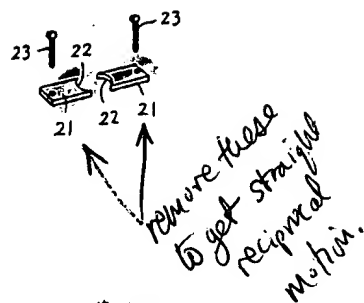 23
23
22
21
22
21
remove these
to get straight
reciprocal
motion.